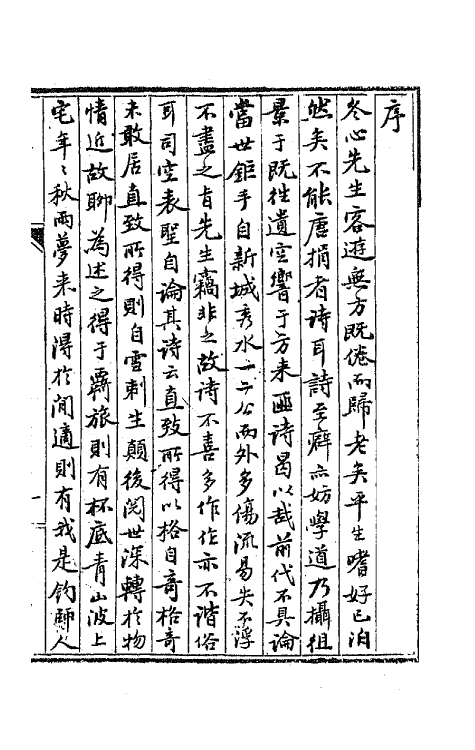 序
冬心先生客遊無方既倦而歸老矣平生嗜好已泊
然矣不能唐捐者詩耳詩至癖亦妨學道乃攝徂
景于既往遺空響于方來匪詩曷以哉前代不具論
當世鉅手自新城秀水一二公而外多傷流易失不淳
不盡之旨先生竊非之故詩不喜多作作亦不諧俗
耳司空表聖自論其詩云直致所得以格自奇格奇
未敢居直致所得則自雪刺生顛後閱世深轉於物
情近故聊為述之得于羇旅則有杯底青山波上
宅年〻秋雨夢來時得於閒適則有我是釣師人